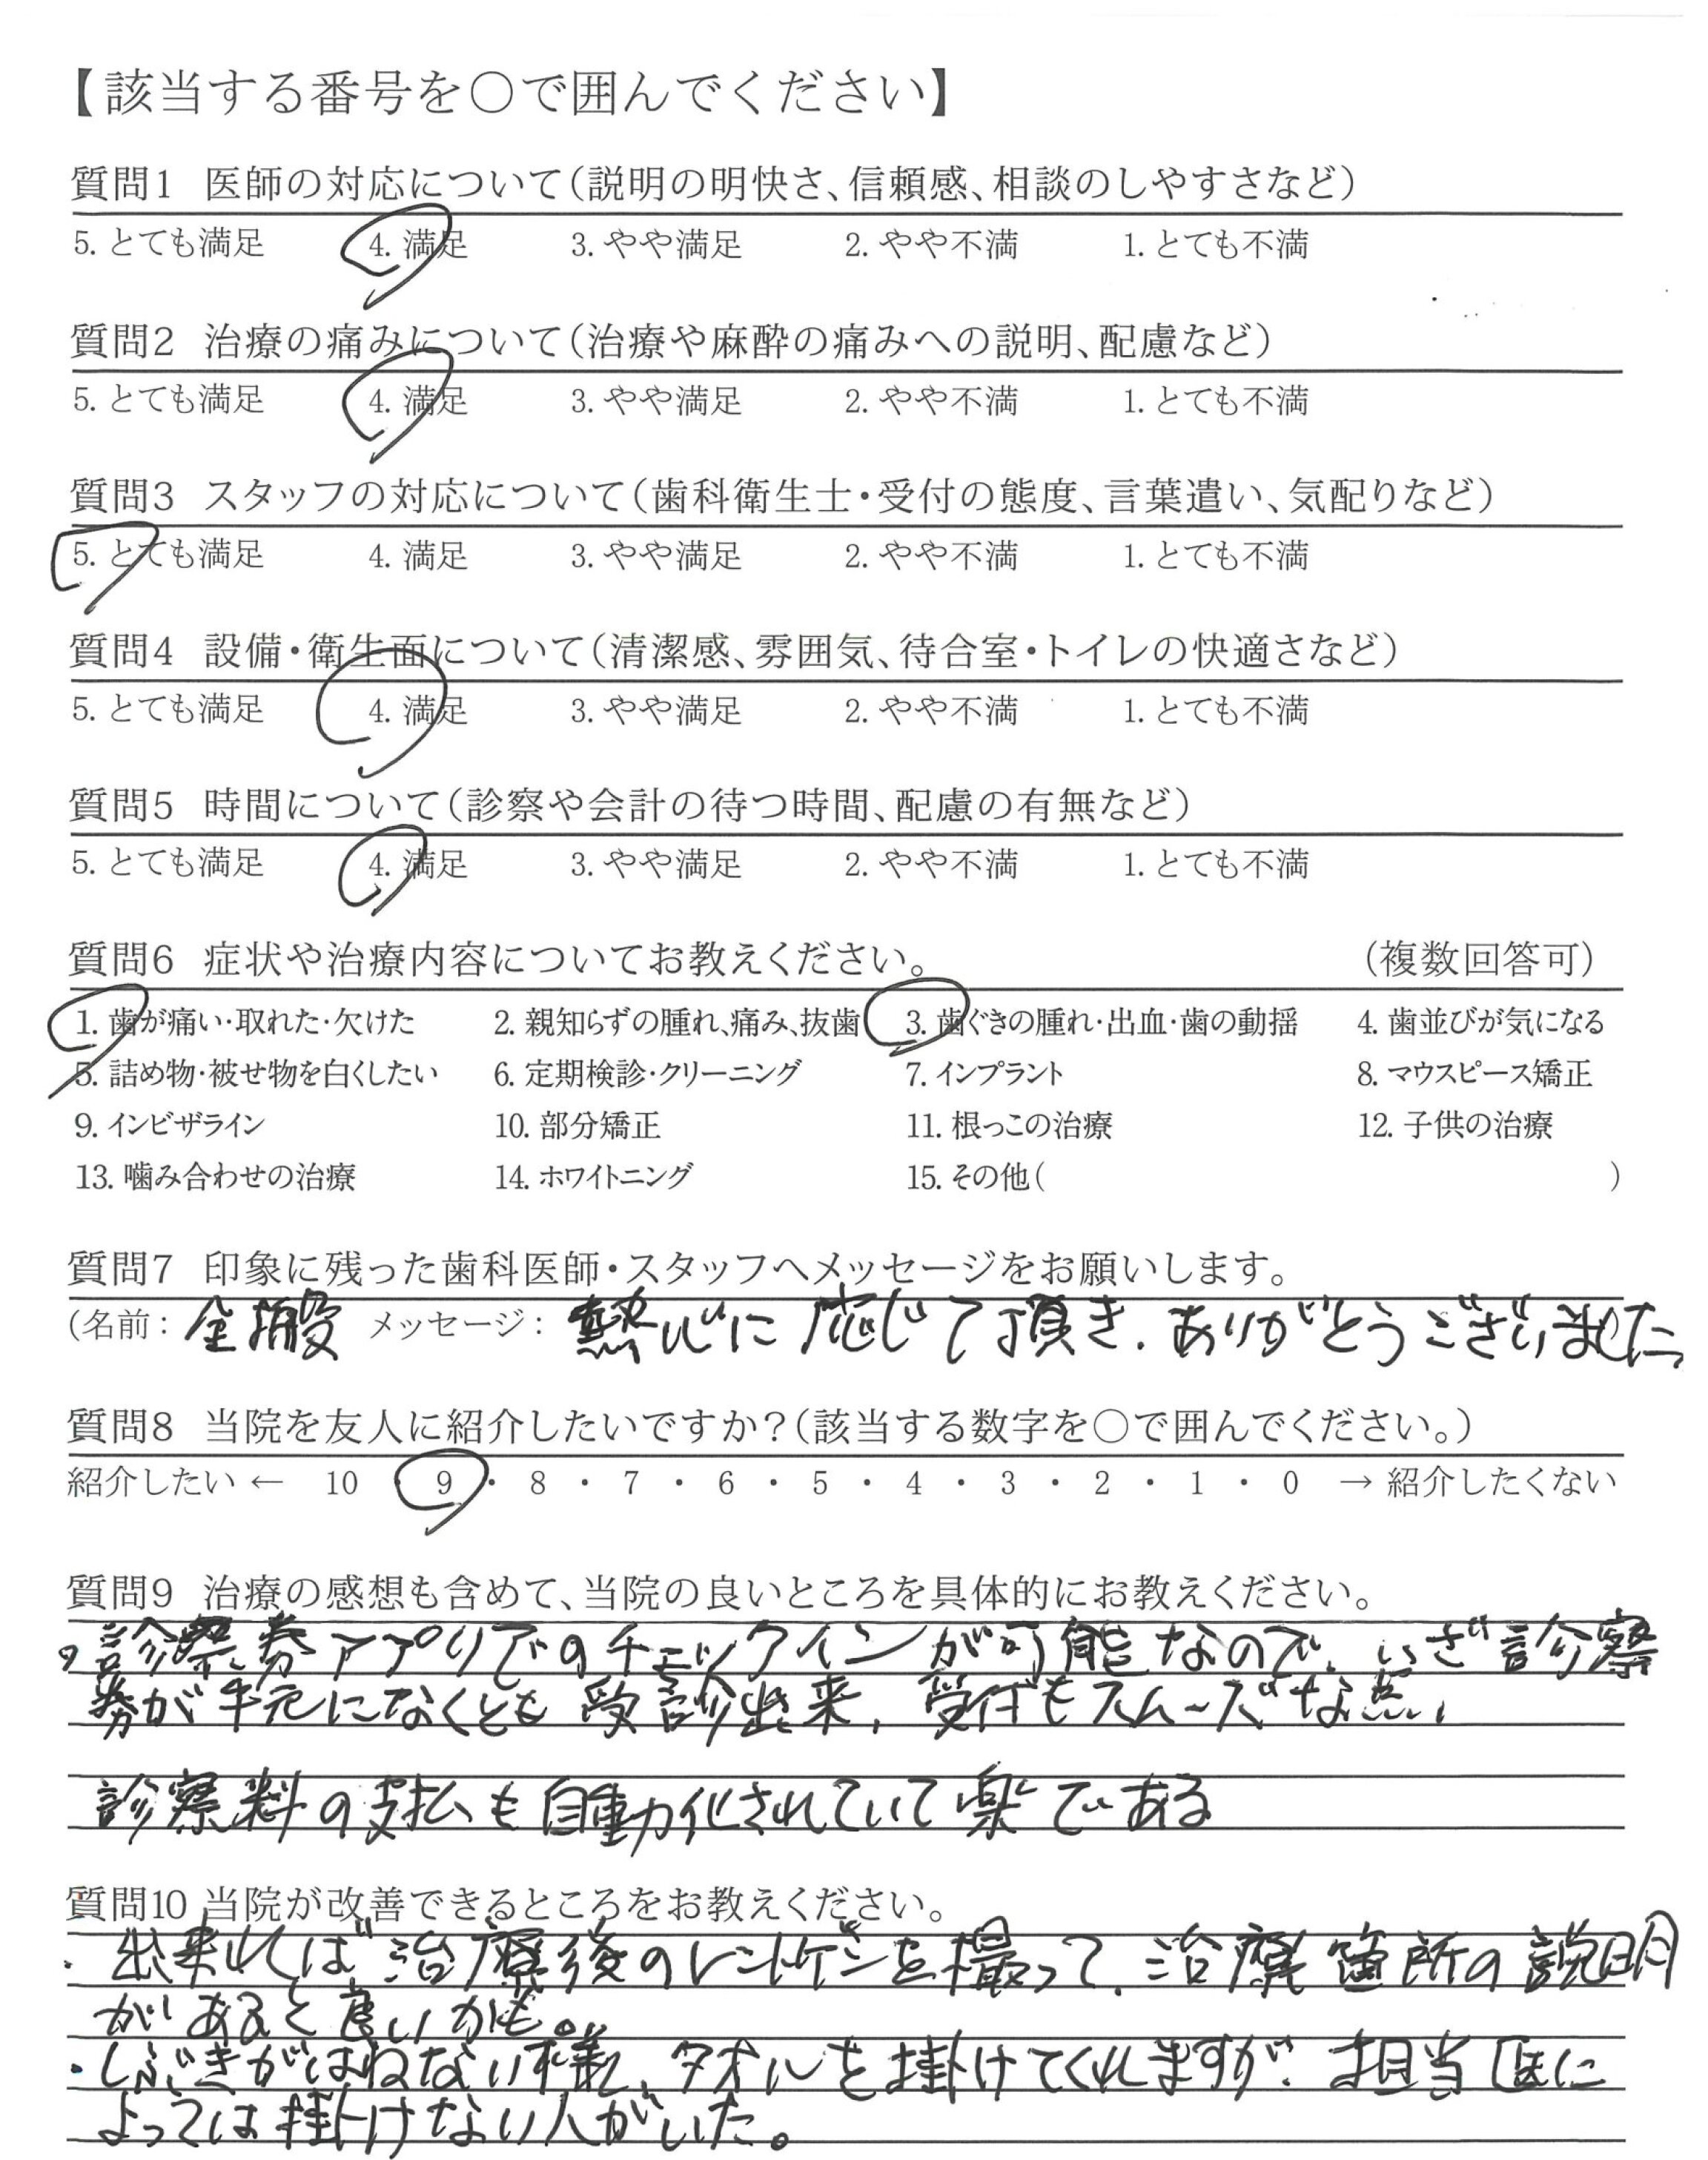 【該当する番号を○で囲んでください】
質問1 医師の対応について（説明の明快さ、信頼感、相談のしやすさなど）
5. とても満足 4. 満足 3. やや満足 2. やや不満 1. とても不満
質問2 治療の痛みについて（治療や麻酔の痛みへの説明、配慮など）
5. とても満足 4. 満足 3. やや満足 2. やや不満 1. とても不満
質問3 スタッフの対応について（歯科衛生士・受付の態度、言葉遣い、気配りなど）
5. とても満足 4. 満足 3. やや満足 2. やや不満 1. とても不満
質問4 設備・衛生面について（清潔感、雰囲気、待合室・トイレの快適さなど）
5. とても満足 4. 満足 3. やや満足 2. やや不満 1. とても不満
質問5 時間について（診察や会計の待つ時間、配慮の有無など）
5. とても満足 4. 満足 3. やや満足 2. やや不満 1. とても不満
質問6 症状や治療内容についてお教えください。 （複数回答可）
1. 歯が痛い・取れた・欠けた 2. 親知らずの腫れ、痛み、抜歯 3. 歯ぐきの腫れ・出血・歯の動揺 4. 歯並びが気になる
5. 詰め物・被せ物を白くしたい 6. 定期検診・クリーニング 7. インプラント 8. マウスピース矯正
9. インビザライン 10. 部分矯正 11. 根っこの治療 12. 子供の治療
13. 噛み合わせの治療 14. ホワイトニング 15. その他（ ）
質問7 印象に残った歯科医師・スタッフへメッセージをお願いします。
（名前： メッセージ： 熱心に応じて頂き、ありがとうございました
質問8 当院を友人に紹介したいですか？（該当する数字を○で囲んでください。）
紹介したい ← 10 ・ 9 ・ 8 ・ 7 ・ 6 ・ 5 ・ 4 ・ 3 ・ 2 ・ 1 ・ 0 → 紹介したくない
質問9 治療の感想も含めて、当院の良いところを具体的にお教えください。
・診察券アプリでのチェックインが可能なので、いざ診察
券が手元になくとも受診出来、受付もスムーズな点、
診察料の支払も自動化されていて楽である
質問10 当院が改善できるところをお教えください。
・出来れば治療後のレントゲンを撮って、治療箇所の説明
があると良いかも。
・しぶきがはねない様に、タオルを掛けてくれますが、担当医に
よっては掛けない人がいた。